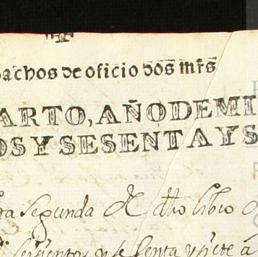 pachos de oficio dos mrs
ARTO, AÑO DE MI
OS Y SESENTA Y S
ra segunda de dho libro
setecientos y sesenta y siete a